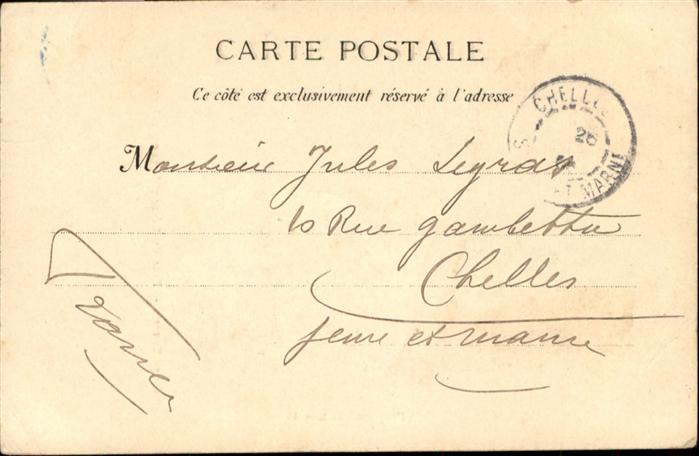 CARTE POSTALE
Ce côté est exclusivement réservé à l'adresse
CHELLES
25
ET MARNE
Monsieur Jules Legras
10 Rue Gambetta
Chelles
Seine et Marne